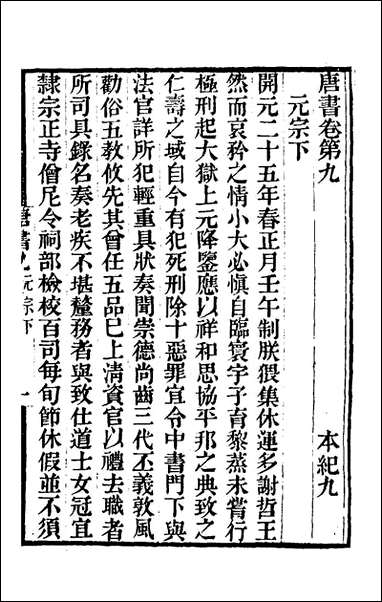 唐書卷第九　本紀九
元宗下
開元二十五年春正月壬午制朕猥集休運多謝哲王
然而哀矜之情小大必慎自臨寰宇子育黎蒸未嘗行
極刑起大獄上元降鑒應以祥和思協平邦之典致之
仁壽之域自今有犯死刑除十惡罪宜令中書門下與
法官詳所犯輕重具狀奏聞崇德尚齒三代丕義敦風
勸俗五教攸先其曾任五品已上清資官以禮去職者
所司具錄名奏老疾不堪釐務者與致仕道士女冠宜
隸宗正寺僧尼令祠部檢校百司每旬節休假並不須
唐書九　元宗下　一